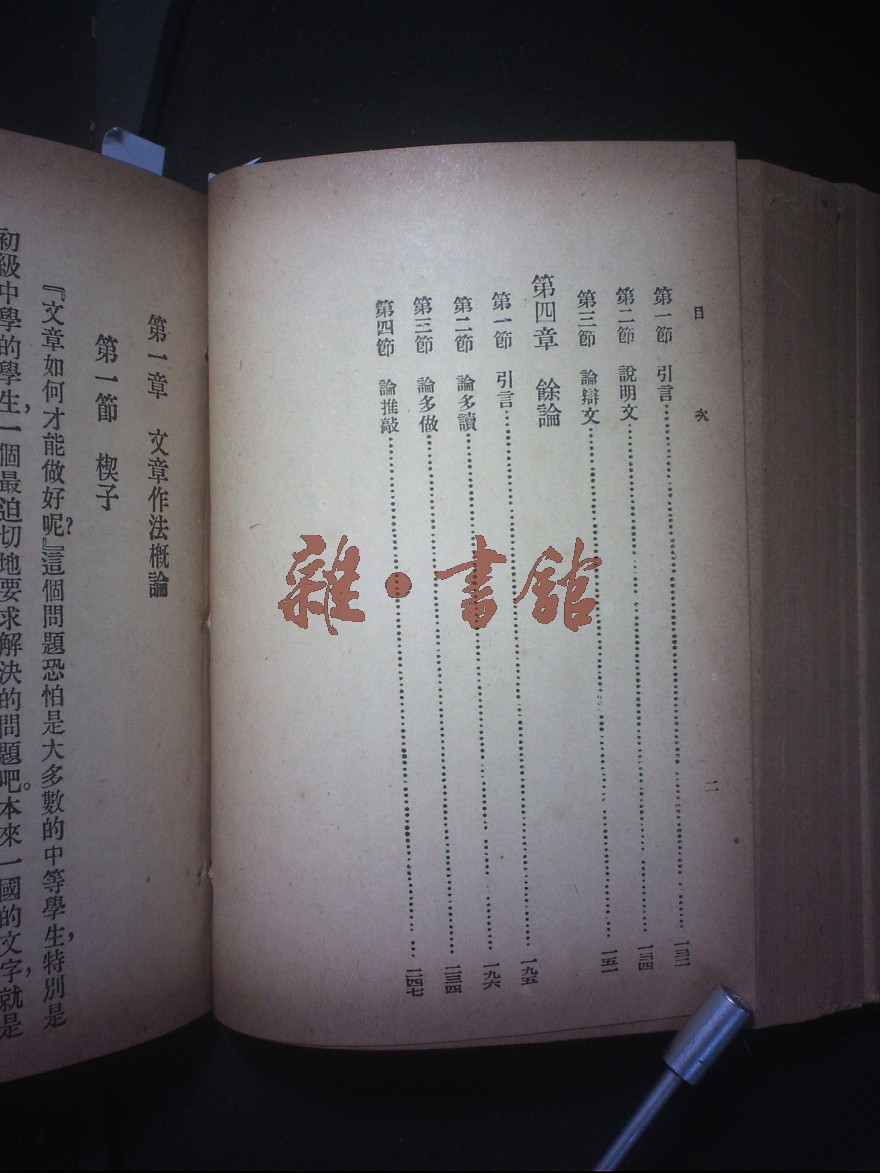 目次
第一節 引言……一三二
第二節 說明文……一三四
第三節 論辯文……一五一
第四章 餘論
第一節 引言……一九五
第二節 論多讀……一九六
第三節 論多做……二三四
第四節 論推敲……二四七
二
雜·書舘
第一章 文章作法概論
第一節 楔子
『文章如何才能做好呢？』這個問題恐怕是大多數的中等學生，特別是
初級中學的學生，一個最迫切地要求解決的問題吧。本來一國的文字，就是